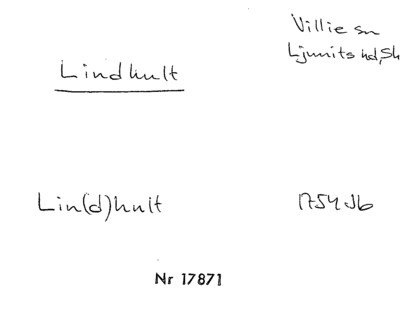 Villie sn
Ljunits hd, Sk
Lindhult
Lin(d)hult 1754 Jb
Nr 17871